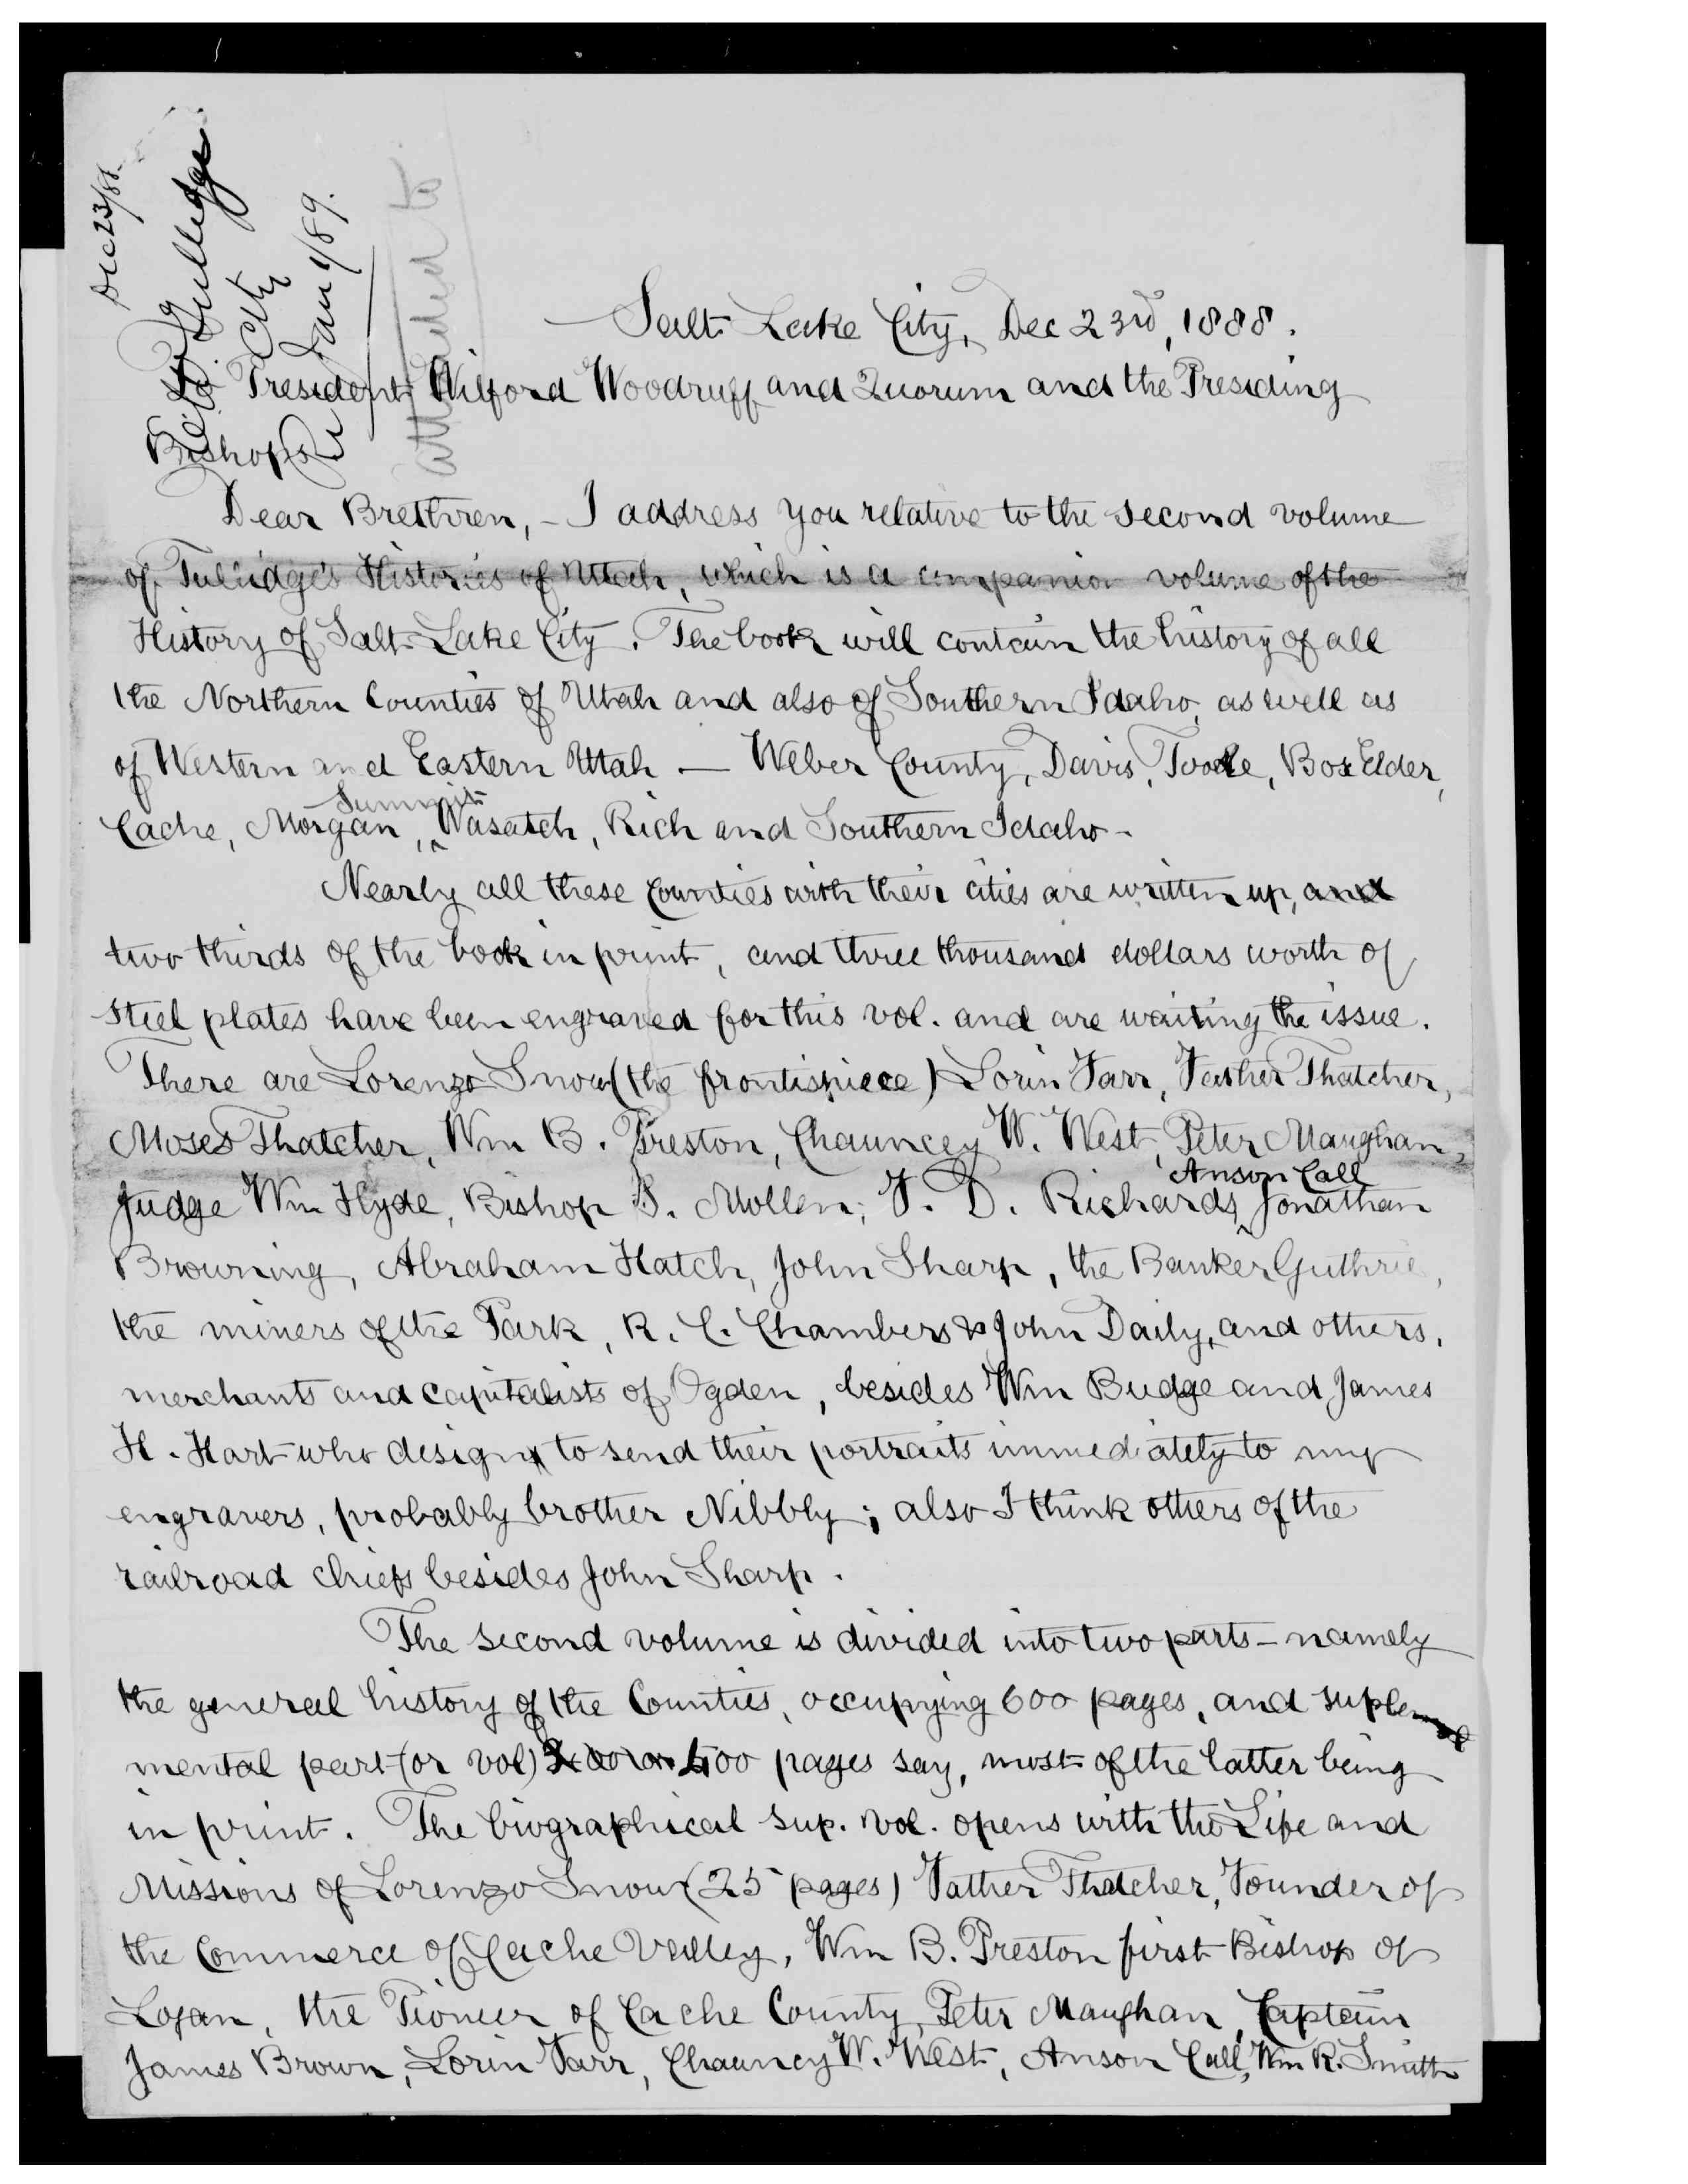 Dec 23/88.
E. W. Tullidge
City
Jan 1/89.
attended to
Salt Lake City, Dec 23rd, 1888.
President Wilford Woodruff and Quorum and the Presiding
Bishops
Dear Brethren, - I address you relative to the second volume
of Tullidge's Histories of Utah, which is a companion volume of the
History of Salt Lake City. The book will contain the history of all
the Northern Counties of Utah and also of Southern Idaho, as well as
of Western and Eastern Utah — Weber County, Davis, Tooele, Box Elder,
Summit
Cache, Morgan, ^ Wasatch, Rich and Southern Idaho -
Nearly all these Counties with their cities are written up, and
two thirds of the book in print, and three thousand dollars worth of
steel plates have been engraved for this vol. and are waiting the issue.
There are Lorenzo Snow (the frontispiece) Lorin Farr, Father Thatcher,
Moses Thatcher, Wm B. Preston, Chauncey W. West, Peter Maughan,
Anson Call
Judge Wm Hyde, Bishop S. Mollen, F. D. Richards, ^ Jonathan
Browning, Abraham Hatch, John Sharp, the Banker Guthrie,
the miners of the Park, R. C. Chambers & John Daily, and others,
merchants and capitalists of Ogden, besides Wm Budge and James
H. Hart who design to send their portraits immediately to my
engravers, probably brother Nibbly; also I think others of the
railroad chiefs besides John Sharp.
The second volume is divided into two parts - namely
the general history of the Counties, occupying 600 pages, and suple
mental part (or vol) 400 pages say, most of the latter being
in print. The biographical sup. vol. opens with the Life and
Missions of Lorenzo Snow (25 pages) Father Thatcher, Founder of
the Commerce of Cache Valley, Wm B. Preston first Bishop of
Logan, the Pioneer of Cache County, Peter Maughan, Captain
James Brown, Lorin Farr, Chauncy W. West, Anson Call, Wm R. Smith